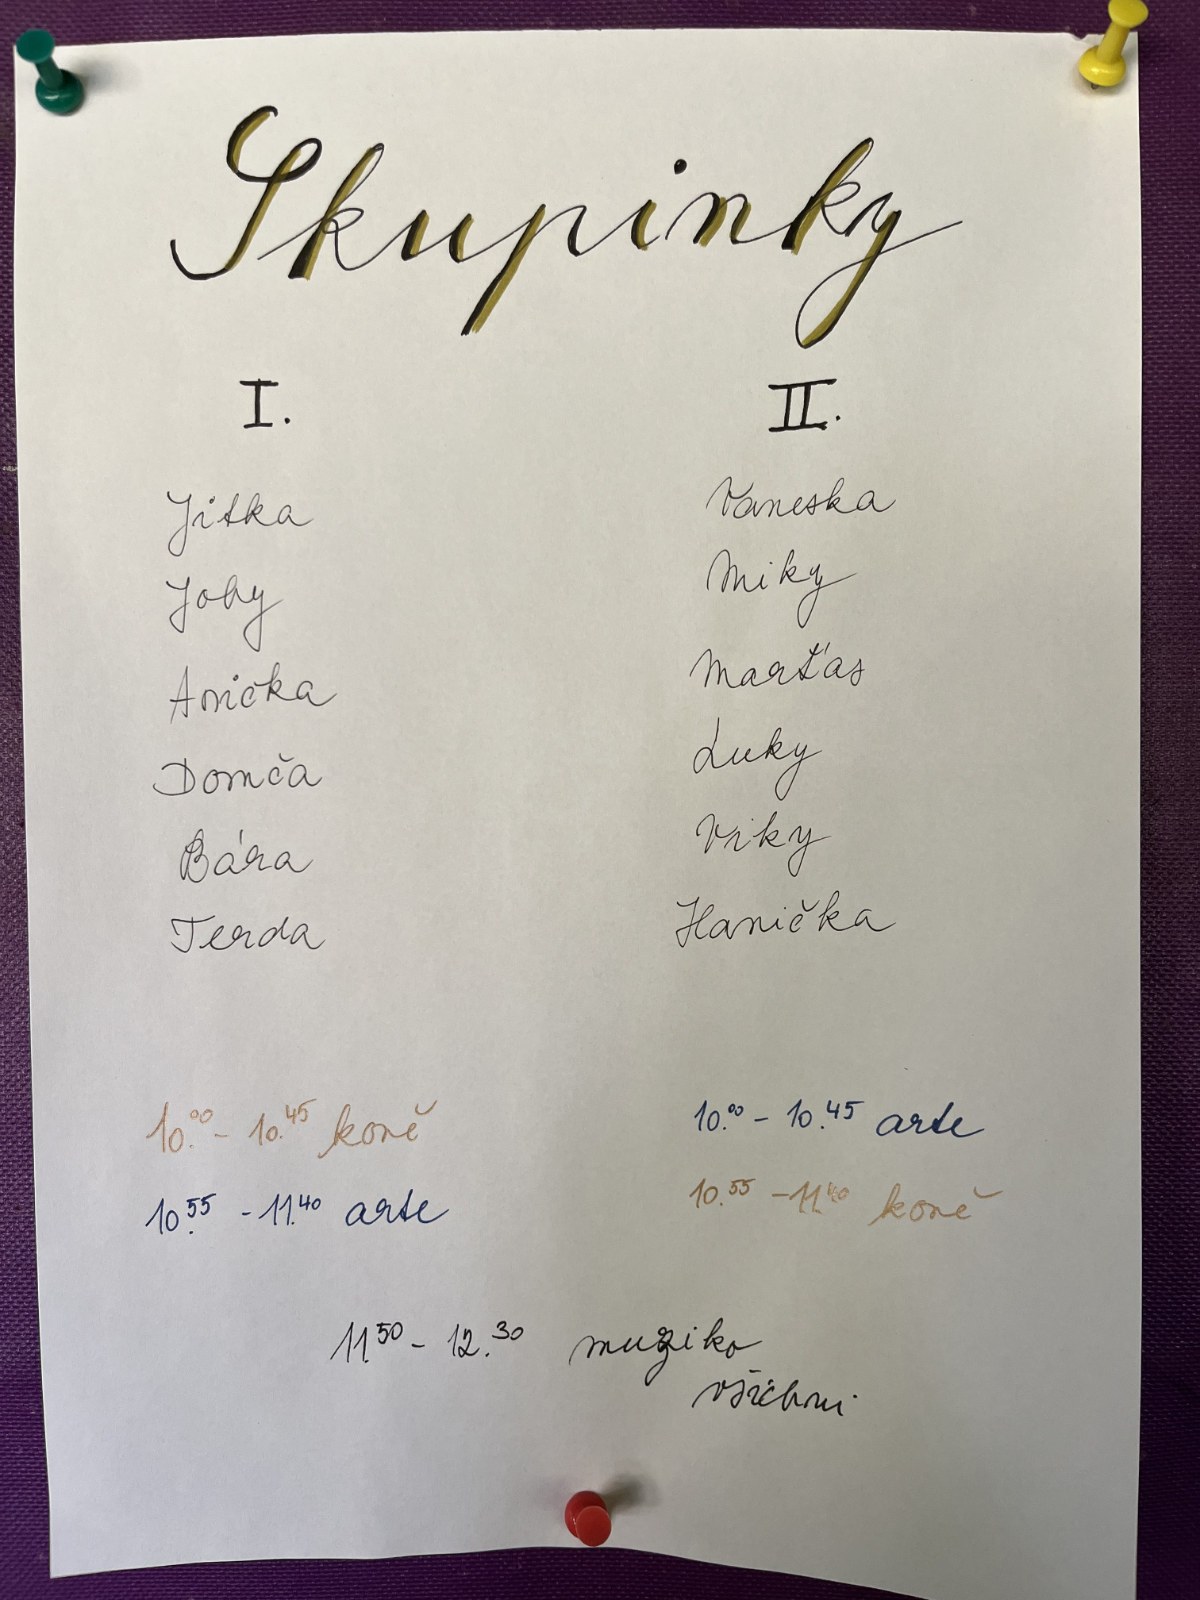 Skupinky
I.
Jitka
Joby
Anička
Domča
Bára
Terda
10.00 - 10.45 koně
10.55 - 11.40 arte
II.
Vaneska
Miky
Marťas
Luky
Viky
Hanička
10.00 - 10.45 arte
10.55 - 11.40 koně
11.50 - 12.30 muziko
všichni